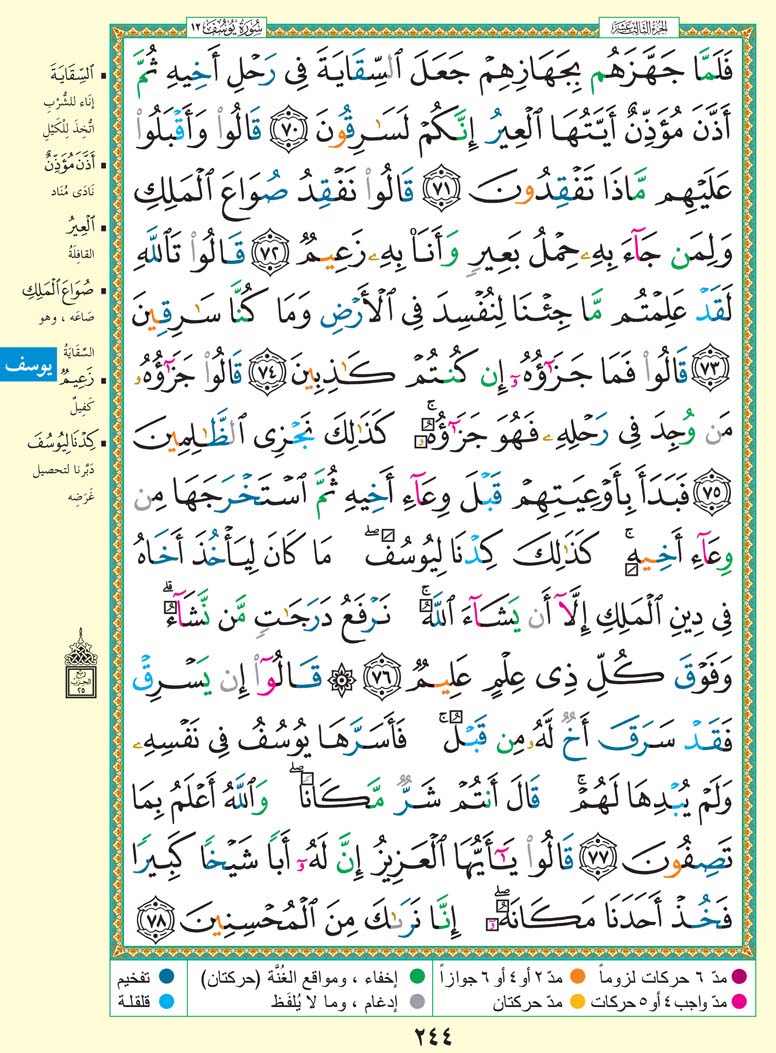 سُورَةُ يُوسُفَ ١٢
الجزء الثالث عشر
فَلَمَّا جَهَّزَهُم بِجَهَازِهِمْ جَعَلَ ٱلسِّقَايَةَ فِى رَحْلِ أَخِيهِ ثُمَّ
أَذَّنَ مُؤَذِّنٌ أَيَّتُهَا ٱلْعِيرُ إِنَّكُمْ لَسَـٰرِقُونَ ٧٠ قَالُوا۟ وَأَقْبَلُوا۟
عَلَيْهِم مَّاذَا تَفْقِدُونَ ٧١ قَالُوا۟ نَفْقِدُ صُوَاعَ ٱلْمَلِكِ
وَلِمَن جَآءَ بِهِۦ حِمْلُ بَعِيرٍ وَأَنَا۠ بِهِۦ زَعِيمٌ ٧٢ قَالُوا۟ تَٱللَّهِ
لَقَدْ عَلِمْتُم مَّا جِئْنَا لِنُفْسِدَ فِى ٱلْأَرْضِ وَمَا كُنَّا سَـٰرِقِينَ
٧٣ قَالُوا۟ فَمَا جَزَٰٓؤُهُۥٓ إِن كُنتُمْ كَـٰذِبِينَ ٧٤ قَالُوا۟ جَزَٰٓؤُهُۥ
مَن وُجِدَ فِى رَحْلِهِۦ فَهُوَ جَزَٰٓؤُهُۥ ۚ كَذَٰلِكَ نَجْزِى ٱلظَّـٰلِمِينَ
٧٥ فَبَدَأَ بِأَوْعِيَتِهِمْ قَبْلَ وِعَآءِ أَخِيهِ ثُمَّ ٱسْتَخْرَجَهَا مِن
وِعَآءِ أَخِيهِ ۚ كَذَٰلِكَ كِدْنَا لِيُوسُفَ ۖ مَا كَانَ لِيَأْخُذَ أَخَاهُ
فِى دِينِ ٱلْمَلِكِ إِلَّآ أَن يَشَآءَ ٱللَّهُ ۚ نَرْفَعُ دَرَجَـٰتٍ مَّن نَّشَآءُ ۗ
وَفَوْقَ كُلِّ ذِى عِلْمٍ عَلِيمٌ ٧٦ ۞ قَالُوٓا۟ إِن يَسْرِقْ
فَقَدْ سَرَقَ أَخٌ لَّهُۥ مِن قَبْلُ ۚ فَأَسَرَّهَا يُوسُفُ فِى نَفْسِهِۦ
وَلَمْ يُبْدِهَا لَهُمْ ۚ قَالَ أَنتُمْ شَرٌّ مَّكَانًا ۖ وَٱللَّهُ أَعْلَمُ بِمَا
تَصِفُونَ ٧٧ قَالُوا۟ يَـٰٓأَيُّهَا ٱلْعَزِيزُ إِنَّ لَهُۥٓ أَبًا شَيْخًا كَبِيرًا
فَخُذْ أَحَدَنَا مَكَانَهُۥٓ ۖ إِنَّا نَرَىٰكَ مِنَ ٱلْمُحْسِنِينَ ٧٨
▪ ٱلسِّقَايَةَ
إناء للشُّرْبِ
اتُّخِذَ لِلْكَيْلِ
▪ أَذَّنَ مُؤَذِّنٌ
نَادَى مُنَاد
▪ ٱلْعِيرُ
القافلَةُ
▪ صُوَاعَ ٱلْمَلِكِ
صَاعَه ، وهو
السِّقَايَةُ
▪ زَعِيمٌ
كَفِيلٌ
▪ كِدْنَا لِيُوسُفَ
دَبَّرنا لتحصيل
غَرَضِه
يوسف
ربع
الحزب
٢٥
مدّ ٦ حركات لزوماً ● مدّ ٢ أو ٤ أو ٦ جوازاً ● إخفاء ، ومواقع الغُنَّة (حركتان) ● تفخيم
مدّ واجب ٤ أو ٥ حركات ● مدّ حركتان ● إدغام ، وما لا يُلفَظ ● قلقلة
٢٤٤